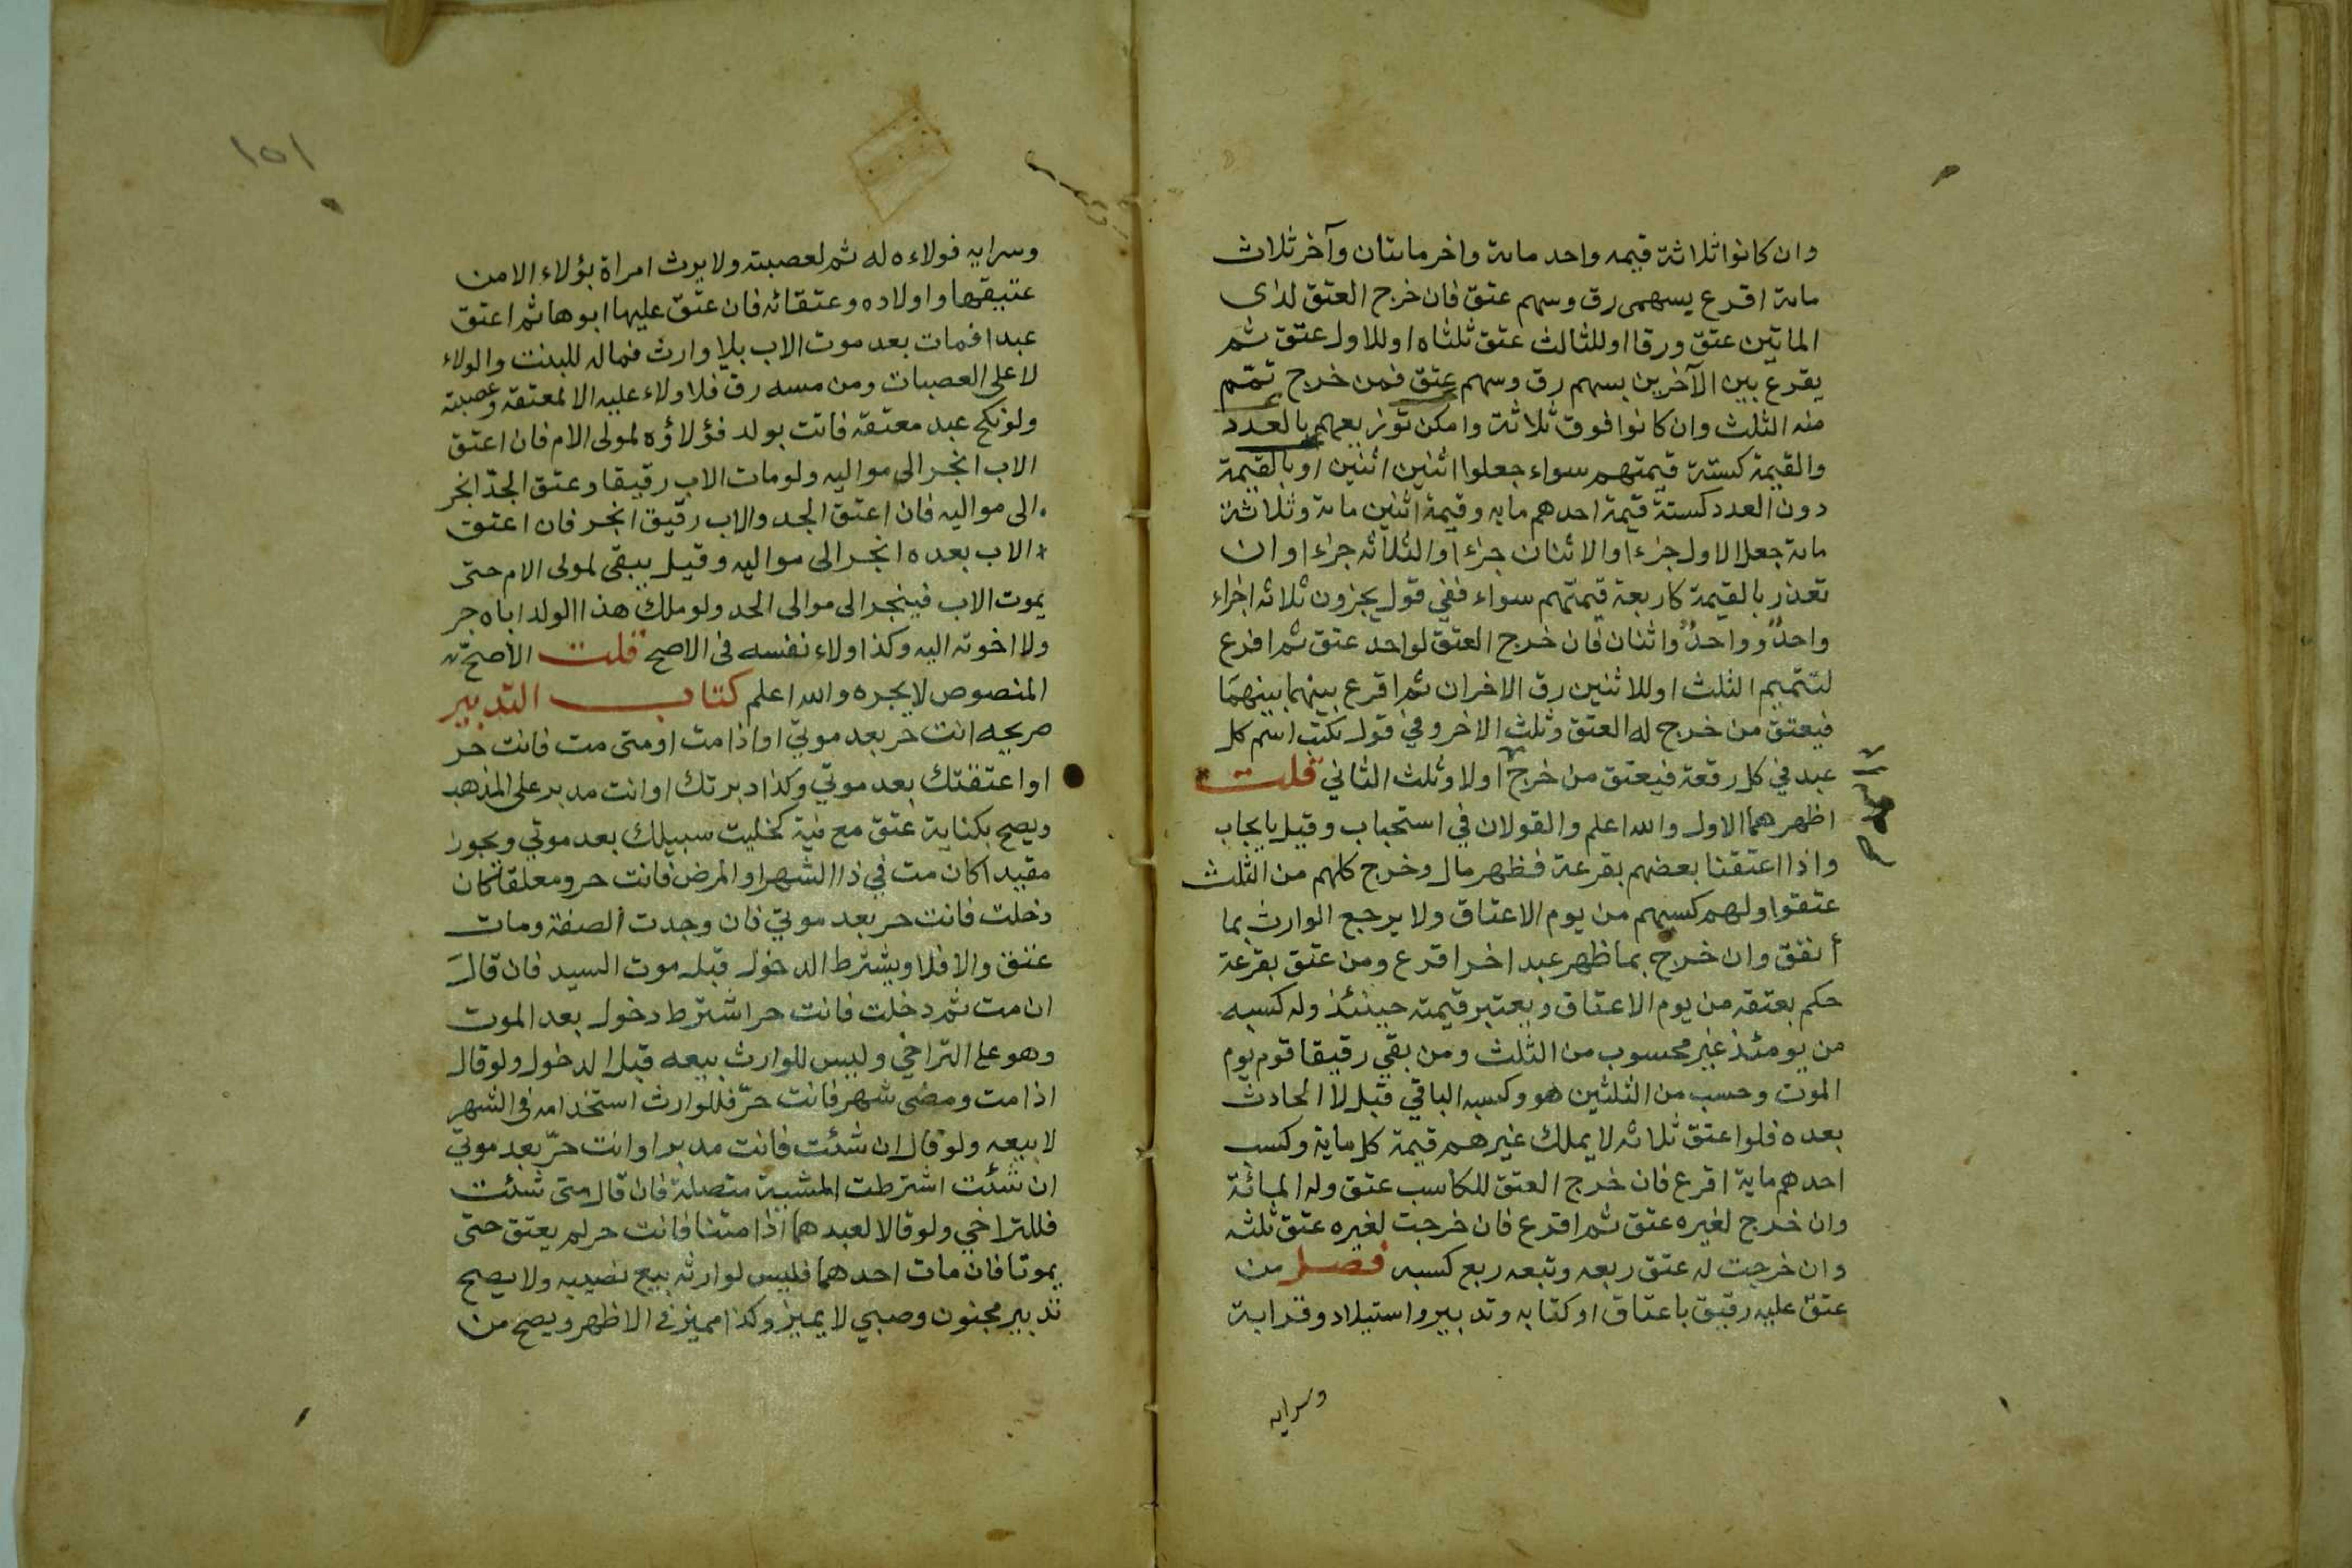 وان كانوا ثلاثة قيمه واحد مائة واخر مائتان وآخر ثلاث
مائة اقرع بسهمى رق وسهم عتق فان خرج العتق لذى
الماتين عتق ورقا اوللثالث عتق ثلثاه اوللاول عتق ثم
يقرع بين الآخرين بسهم رق وسهم عتق فمن خرج تمم
منه الثلث وان كانوا فوق ثلاثة وامكن توزيعهم بالعدد
والقيمة كستة قيمتهم سواء جعلوا اثنين اثنين اوبالقيمة
دون العدد كستة قيمة احدهم مايه وقيمة اثنين مائة وثلاثة
مائة جعل الاول جزءا والاثنان جزءا والثلاثه جزءا وان
تعذر بالقيمة كاربعة قيمتهم سواء ففي قول يجزون ثلاثه اجزاء
واحدٌ وواحدٌ واثنان فان خرج العتق لواحد عتق ثم اقرع
لتتميم الثلث اوللاثنين رق الاخران ثم اقرع بينهما بينهما
فيعتق من خرج له العتق وثلث الاخر وفي قول يكتب اسم كل
عبد في كل رقعة فيعتق من خرج اولا وثلث الثاني قلت
اظهرهما الاول والله اعلم والقولان في استحباب وقيل بايجاب
واذا اعتقنا بعضهم بقرعة فظهر مال وخرج كلهم من الثلث
عتقوا ولهم كسبهم من يوم الاعتاق ولا يرجع الوارث بما
أنفق وان خرج بما ظهر عبد اخر اقرع ومن عتق بقرعة
حكم بعتقه من يوم الاعتاق ويعتبر قيمته حينئذ وله كسبه
من يومئذ غير محسوب من الثلث ومن بقي رقيقا قوم يوم
الموت وحسب من الثلثين هو وكسبه الباقي قبله لا الحادث
بعده فلو اعتق ثلاثه لا يملك غيرهم قيمة كل ماية وكسب
احدهم ماية اقرع فان خرج العتق للكاسب عتق وله المائة
وان خرج لغيره عتق ثم اقرع فان خرجت لغيره عتق ثلثه
وان خرجت له عتق ربعه وتبعه ربع كسبه فصل من
عتق عليه رقيق باعتاق او كتابه وتدبير واستيلاد وقرابة
وسرايه
١٥١
وسرايه فولاءه له ثم لعصبته ولا يرث امراة بولاء الا من
عتيقها واولاده وعتقائه فان عتق عليها ابوها ثم اعتق
عبدا فمات بعد موت الاب بلا وارث فماله للبنت والولاء
لاعلى العصبات ومن مسه رق فلا ولاء عليه الا لمعتقه وعصبته
ولو نكح عبد معتقة فاتت بولد فولاؤه لمولى الام فان اعتق
الاب انجر الى مواليه ولو مات الاب رقيقا وعتق الجد انجر
الى مواليه فان اعتق الجد والاب رقيق انجر فان اعتق
الاب بعده انجر الى مواليه وقيل يبقى لمولى الام حتى
يموت الاب فينجر الى موالى الجد ولو ملك هذا الولد اباه جر
ولا اخوته اليه وكذا ولاء نفسه فى الاصح قلت الأصح
المنصوص لا يجره والله اعلم كتاب التدبير
صريحه انت حر بعد موتي او اذا مت او متى مت فانت حر
او اعتقتك بعد موتي وكذا دبرتك او انت مدبر على المذهب
ويصح بكناية عتق مع نية كخليت سبيلك بعد موتي ويجوز
مقيدا كان مت في ذا الشهر او المرض فانت حر ومعلقا كان
دخلت فانت حر بعد موتي فان وجدت الصفة ومات
عتق والا فلا ويشترط الدخول قبل موت السيد فان قالَ
ان مت ثم دخلت فانت حر اشترط دخول بعد الموت
وهو على التراخي وليس للوارث بيعه قبل الدخول ولو قال
اذا مت ومضى شهر فانت حرّ فللوارث استخدامه فى الشهر
لا بيعه ولو قال ان شئت فانت مدبر او انت حرّ بعد موتي
ان شئت اشترطت المشيية متصلة فان قال متى شئت
فللتراخي ولو قالا لعبدهما اذا متنا فانت حر لم يعتق حتى
يموتا فان مات احدهما فليس لوارثه بيع نصيبه ولا يصح
تدبير مجنون وصبي لا يميز وكذا مميز في الاظهر ويصح من